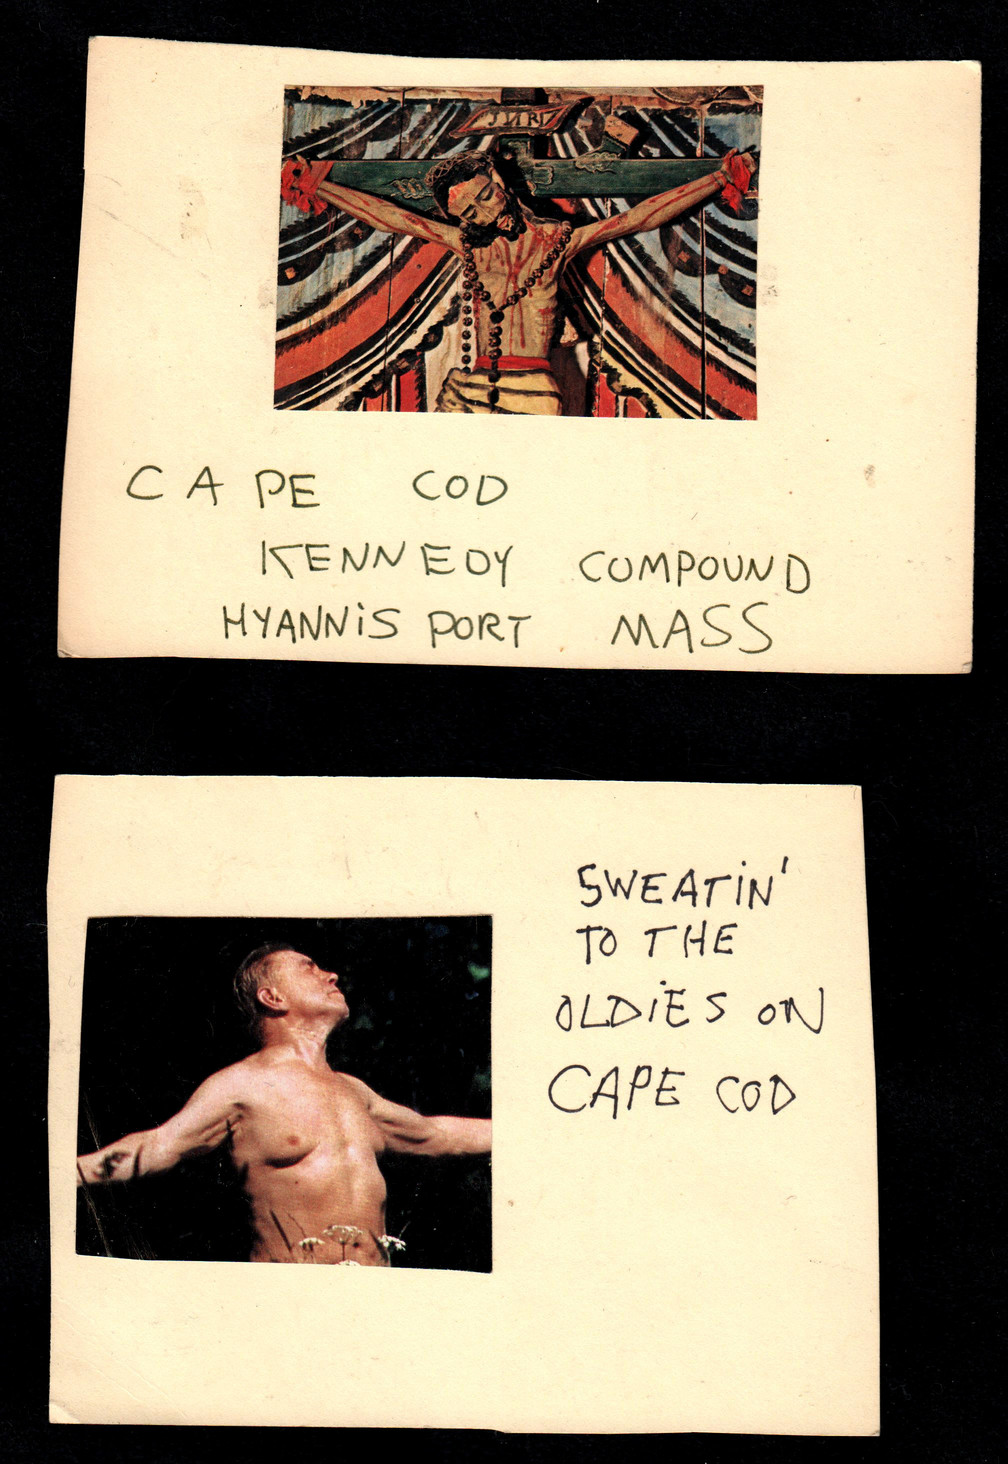 JNRJ
CAPE COD
KENNEDY COMPOUND
HYANNiS PORT MASS
SWEATiN'
TO THE
OLDiES ON
CAPE COD